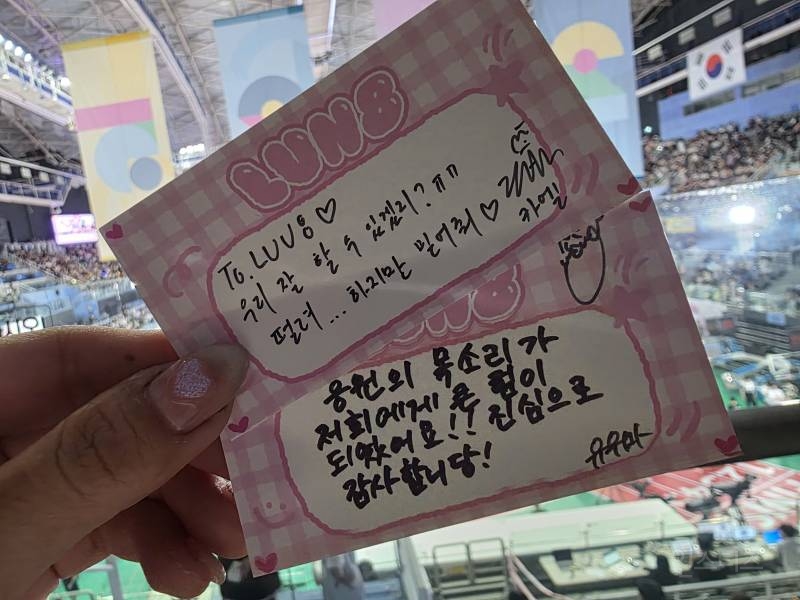 LUN8
To. LUV8♡
우리 잘 할 수 있겠죠? ㅠㅠ
떨려... 하지만 믿어줘♡
카엘
LUN8
응원의 목소리가
저희에게 큰 힘이
되었어요!! 진심으로
감사합니당!
유우마